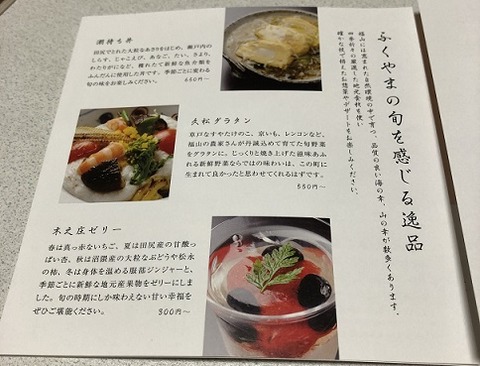 ふくやまの旬を感じる逸品
福山には恵まれた自然環境の中で育つ、品質の良い海の幸、山の幸が数多くあります。
四季折々の厳選した地元食材を使い
確かな技で拵えたお惣菜やデザートをお楽しみください。
潮待ち丼
田尻でとれた大粒なあさりをはじめ、瀬戸内の
しらす、じゃこえび、あなご、たい、さより、
わたりがになど、獲れたて新鮮な魚介類を
ふんだんに使用した丼です。季節ごとに変わる
旬の味をお楽しみください。
久松グラタン
草戸なすやたけのこ、京いも、レンコンなど、
福山の農家さんが丹誠込めて育てた旬野菜
をグラタンに。じっくりと焼き上げた滋味あふ
れる新鮮野菜ならではの味わいは、この町に
生まれて良かったと思わせてくれるはずです。
550円〜
木之庄ゼリー
春は真っ赤ないちご、夏は田尻産の甘酸
っぱい杏、秋は沼隈産の大粒なぶどうや松永
の柿、冬は身体を温める服部ジンジャーと、
季節ごとに新鮮な地元産果物をゼリーにしま
した。旬の時期にしか味わえない甘い幸福を
ぜひご堪能ください。 300円〜